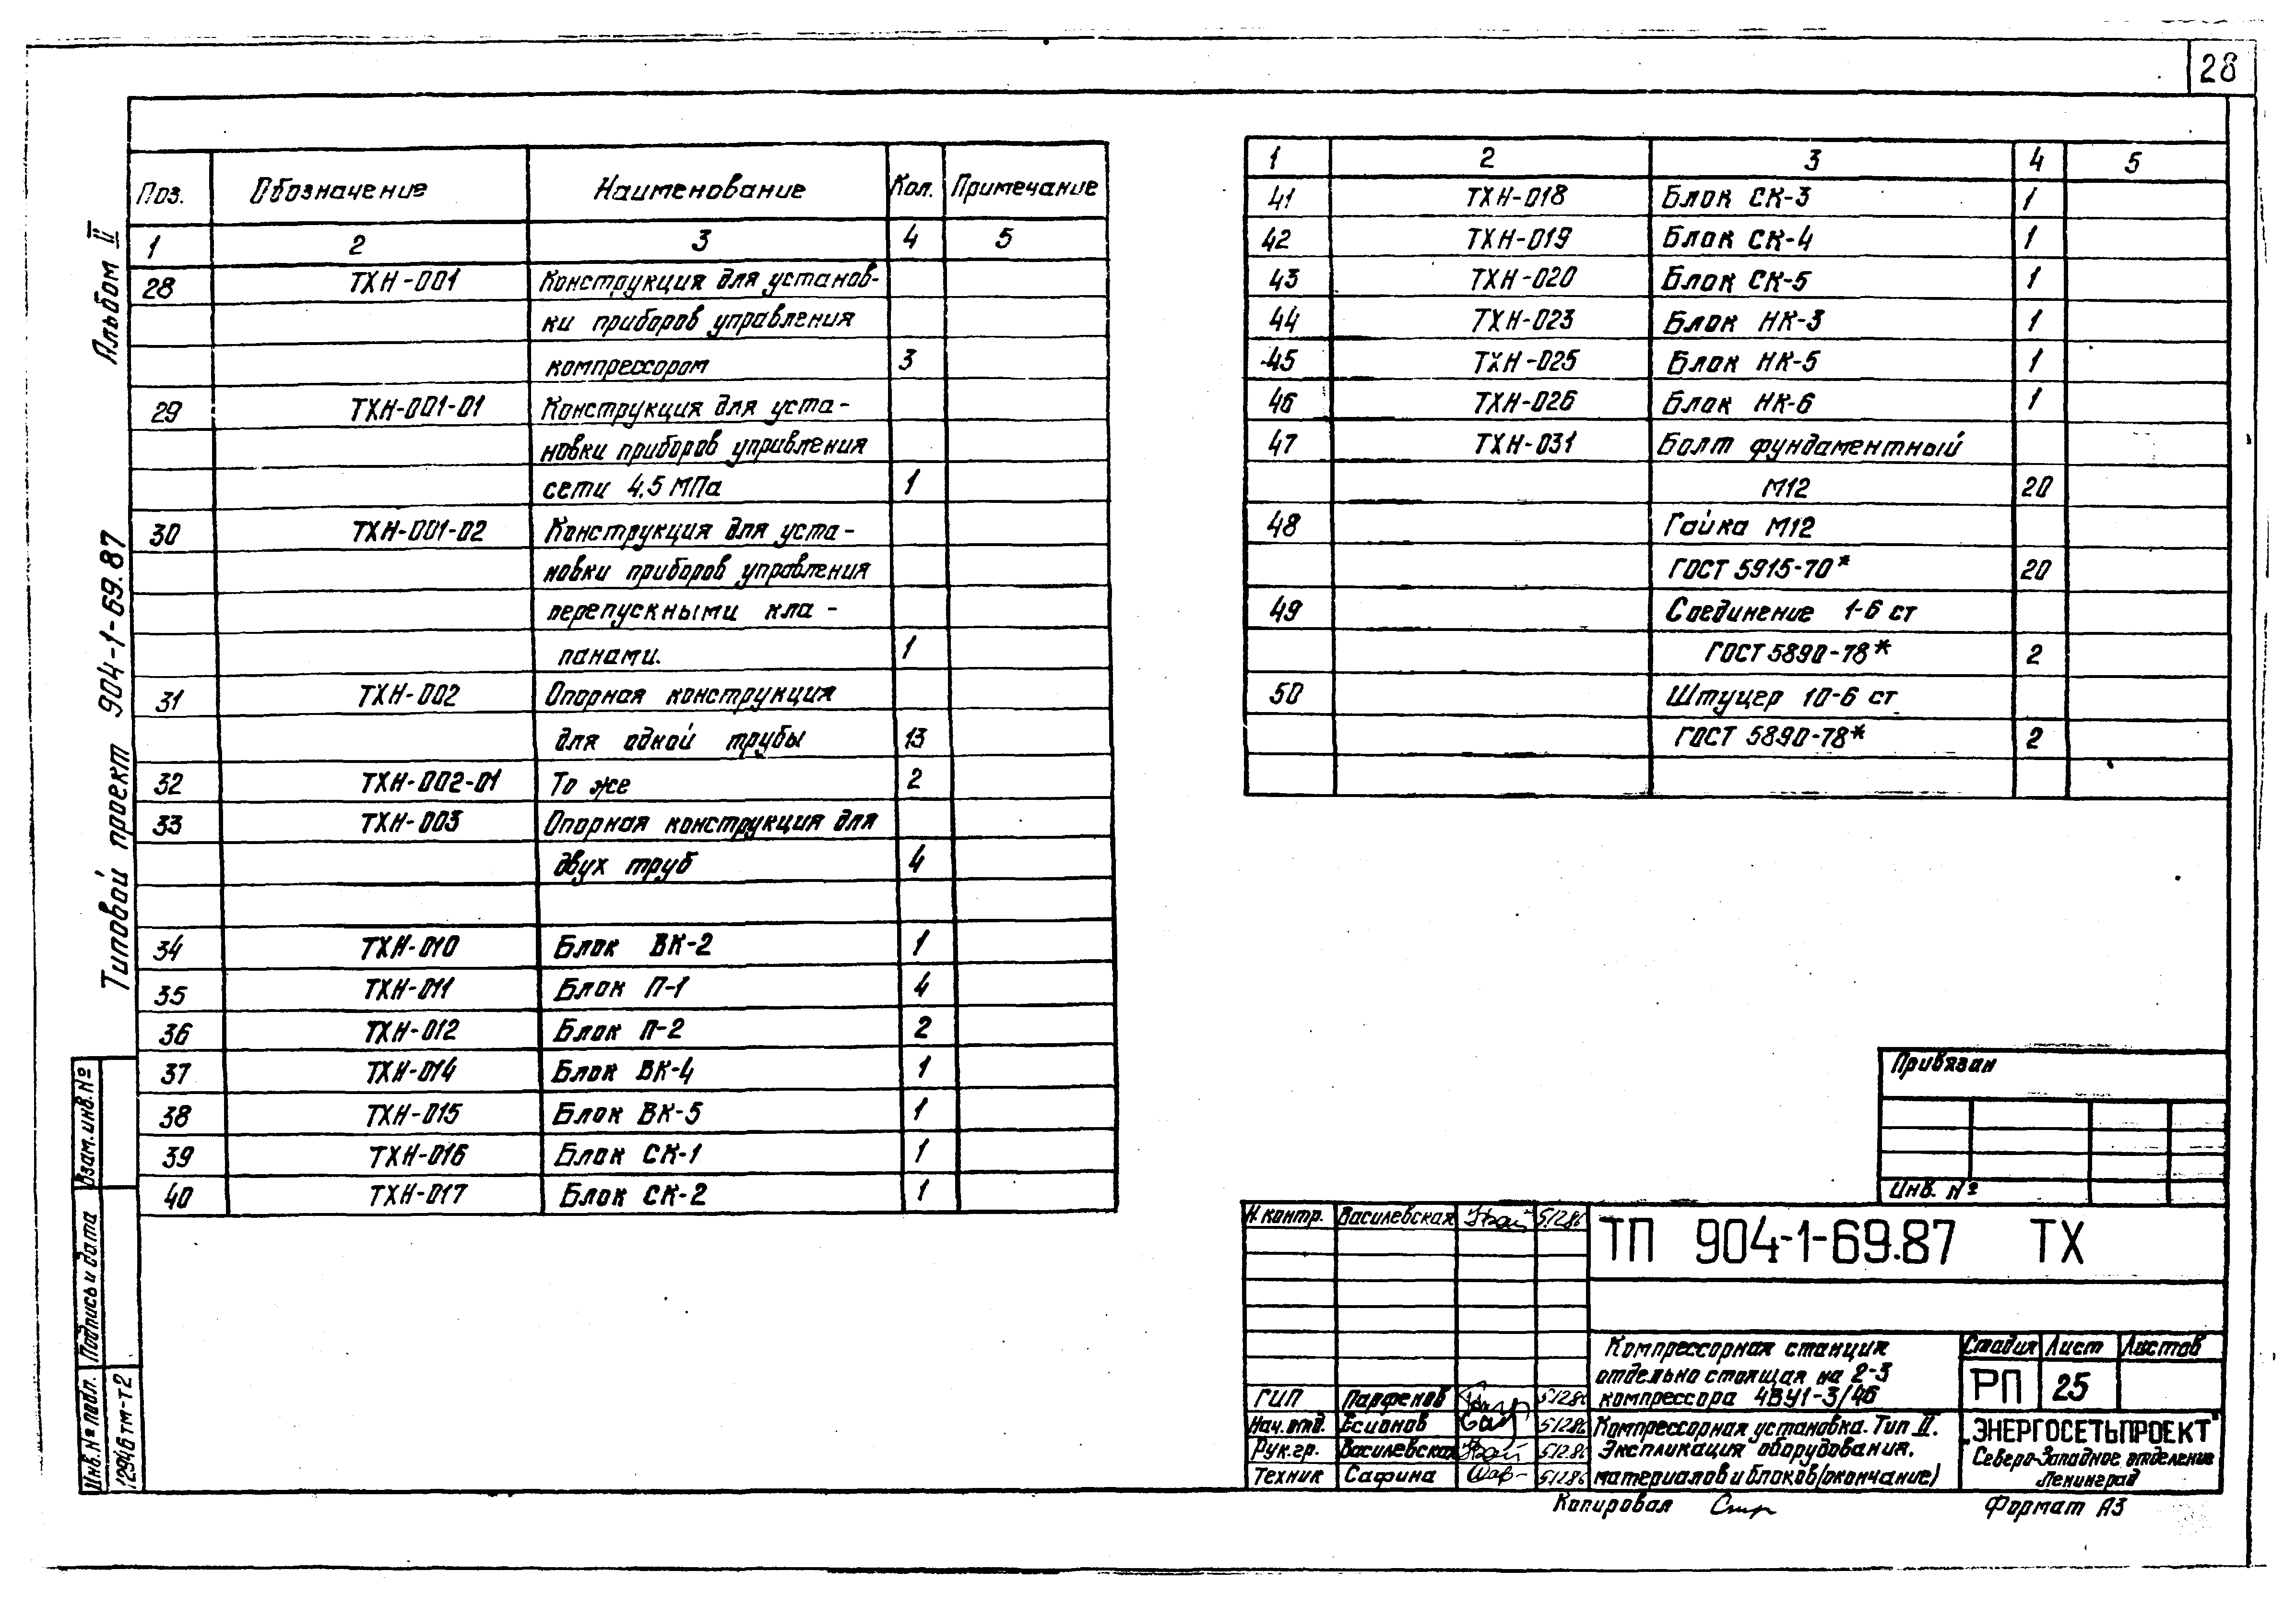 28
Альбом II
Типовой проект 904-1-69.87
Поз. Обозначение Наименование Кол. Примечание
1 2 3 4 5
28 ТХН-001 Конструкция для установ-
ки приборов управления
компрессором 3
29 ТХН-001-01 Конструкция для уста-
новки приборов управления
сети 4,5 МПа 1
30 ТХН-001-02 Конструкция для уста-
новки приборов управления
перепускными кла-
панами. 1
31 ТХН-002 Опорная конструкция
для одной трубы 13
32 ТХН-002-01 То же 2
33 ТХН-003 Опорная конструкция для
двух труб 4
34 ТХН-010 Блок ВК-2 1
35 ТХН-011 Блок П-1 4
36 ТХН-012 Блок П-2 2
37 ТХН-014 Блок ВК-4 1
38 ТХН-015 Блок ВК-5 1
39 ТХН-016 Блок СК-1 1
40 ТХН-017 Блок СК-2 1
1 2 3 4 5
41 ТХН-018 Блок СК-3 1
42 ТХН-019 Блок СК-4 1
43 ТХН-020 Блок СК-5 1
44 ТХН-023 Блок НК-3 1
45 ТХН-025 Блок НК-5 1
46 ТХН-026 Блок НК-6 1
47 ТХН-031 Болт фундаментный
М12 20
48 Гайка М12
ГОСТ 5915-70* 20
49 Соединение 1-6 ст
ГОСТ 5890-78* 2
50 Штуцер 10-6 ст
ГОСТ 5890-78* 2
Привязан
Инв. №
Н.контр. Василевская 5.12.86
ТП 904-1-69.87 ТХ
Компрессорная станция
отдельно стоящая на 2-3
компрессора 4ВУ1-3/46
Стадия Лист Листов
РП 25
ГИП Парфенов 5.12.86
Нач.отд. Есионов 5.12.86
Рук.гр. Василевская 5.12.86
Техник Сафина 5.12.86
Компрессорная установка. Тип II.
Экспликация оборудования,
материалов и блоков (окончание)
"ЭНЕРГОСЕТЬПРОЕКТ"
Северо-Западное отделение
Ленинград
Копировал
Формат А3
Взам.инв.№
Подпись и дата
Инв.№ подл.
12946тм-т2